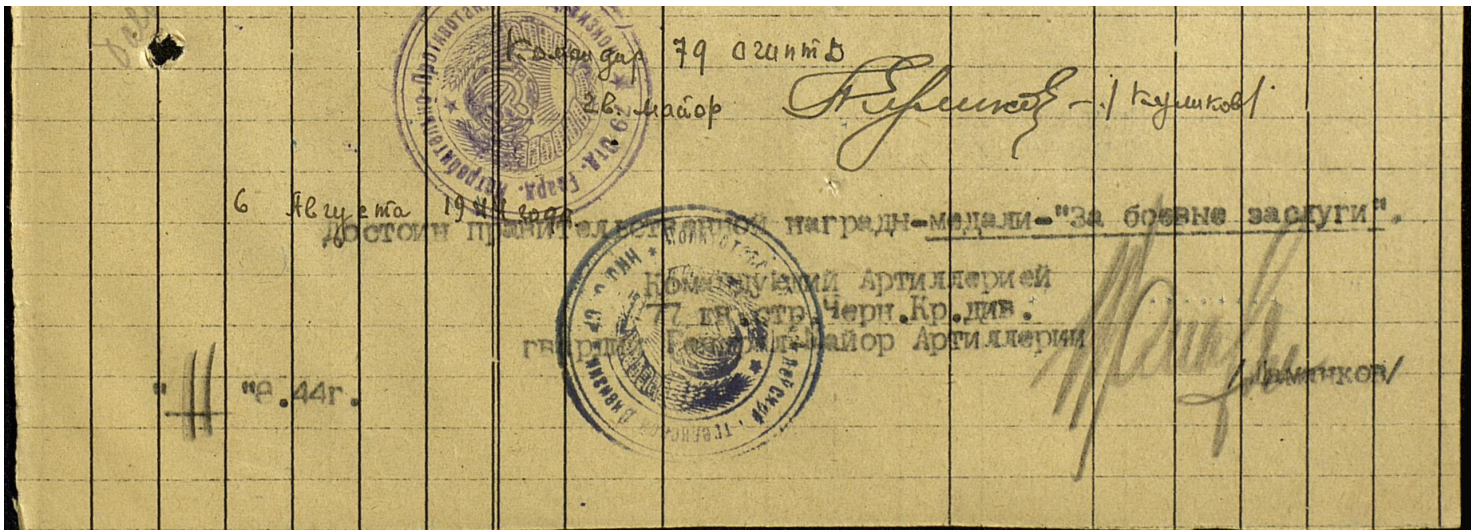 Командир 79 огиптд
гв. майор /Куликов/
6 Августа 1944 года
Достоин правительственной награды-медали-"За боевые заслуги".
Командующий Артиллерией
77 гв.стр.Черн.Кр.див.
гвардии Генерал-Майор Артиллерии
"11"8.44г.